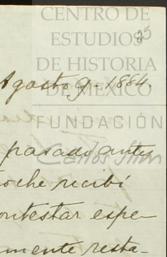 CENTRO DE
ESTUDIOS
25
DE HISTORIA
Agosto 9. 1884.
DE MÉXICO
FUNDACIÓN
pasado antes
Carlos Slim
noche recibí
contestar espe-
mente resta-